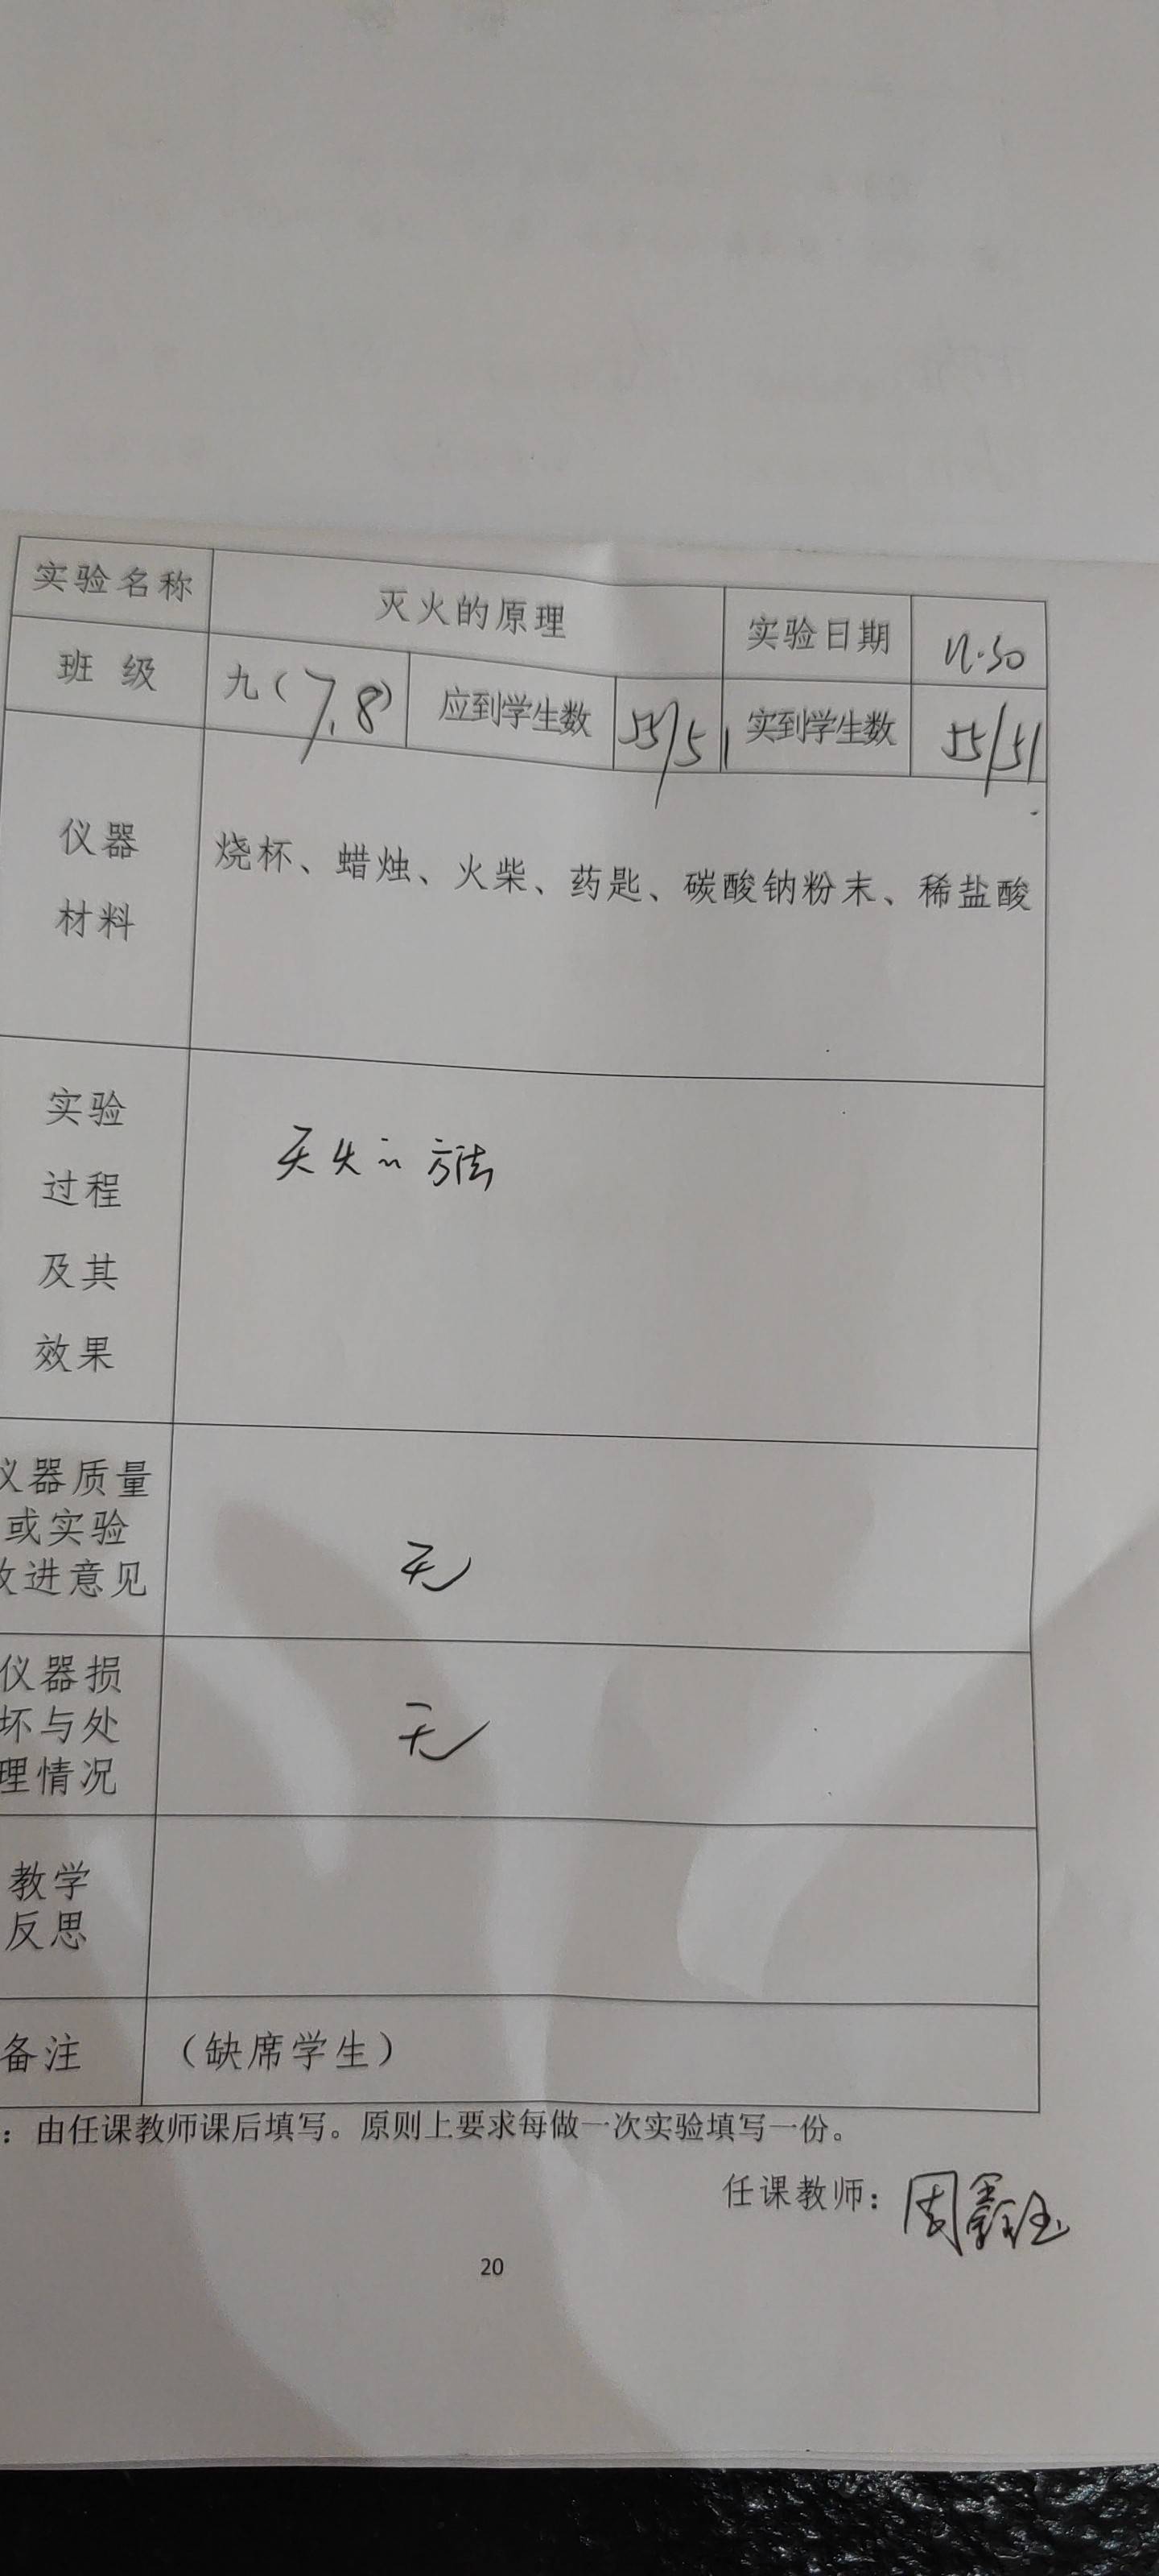 实验名称 灭火的原理 实验日期
班 级 九(7,8) 应到学生数 55/51 实到学生数 55/51
仪器
材料
烧杯、蜡烛、火柴、药匙、碳酸钠粉末、稀盐酸
实验
过程
及其
效果
灭火的方法
仪器质量
或实验
改进意见
无
仪器损
坏与处
理情况
无
教学
反思
备注 （缺席学生）
：由任课教师课后填写。原则上要求每做一次实验填写一份。
任课教师：周鑫钰
20